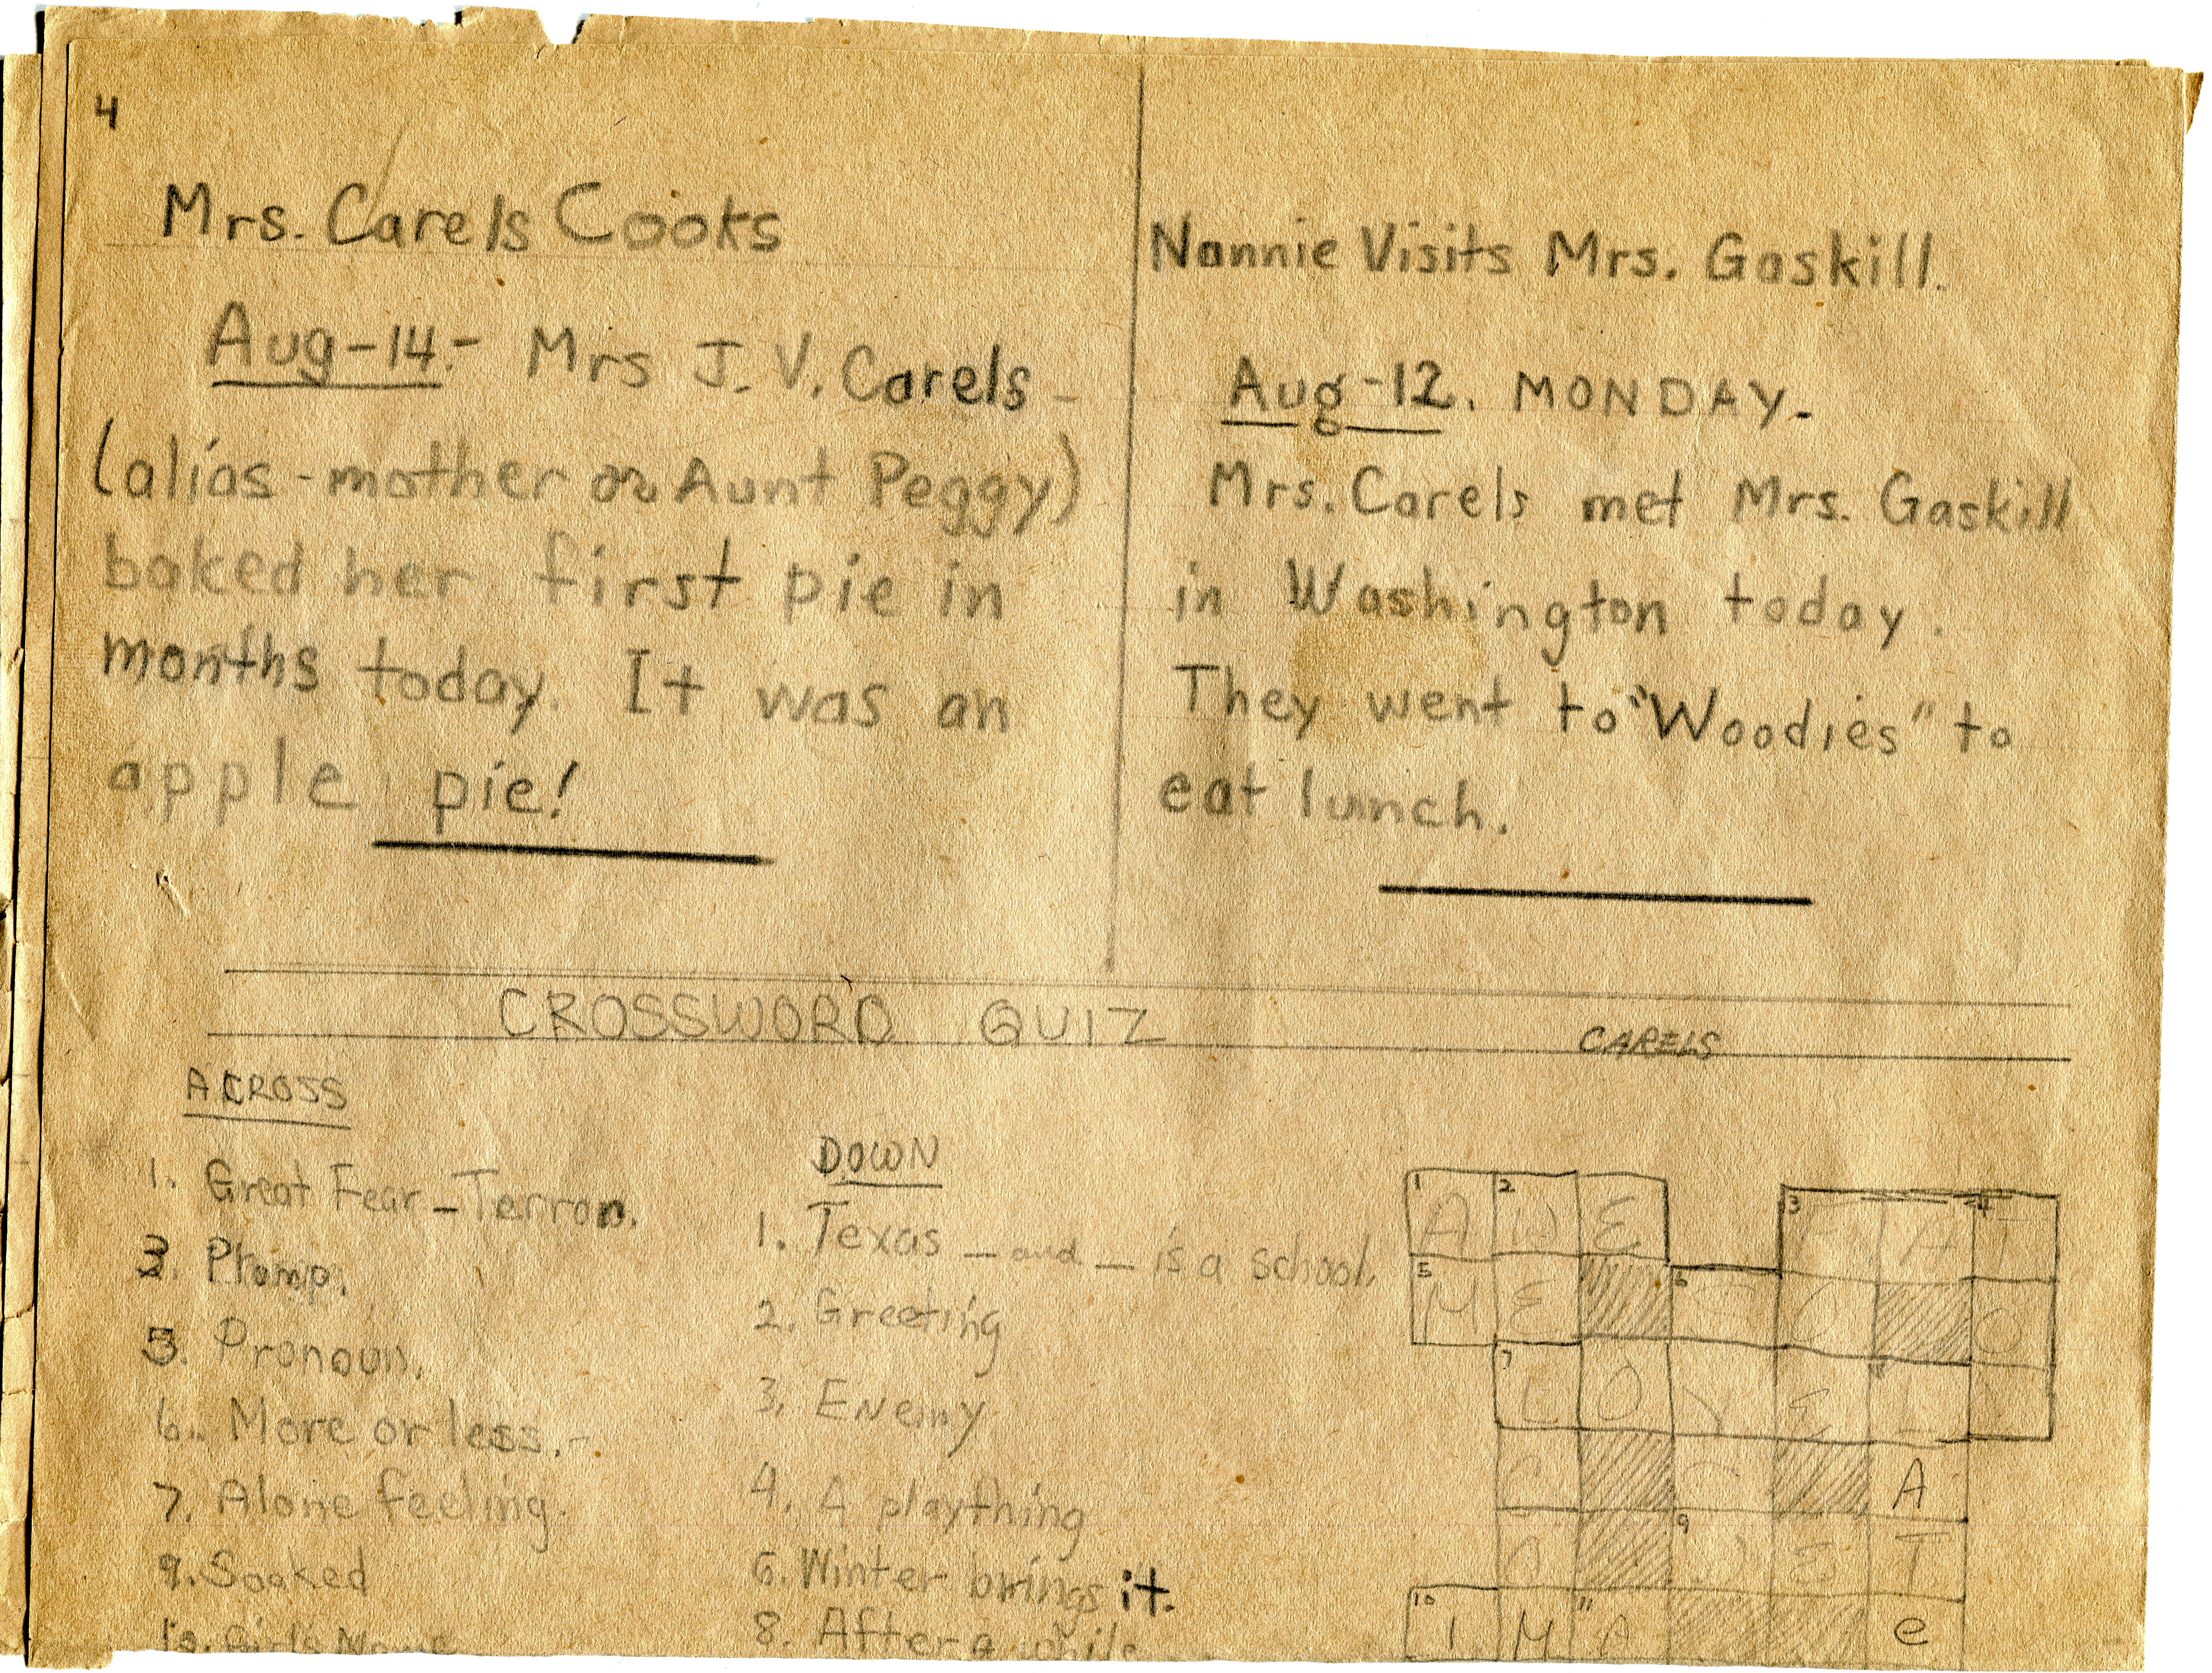 4
Mrs. Carels Cooks
Aug-14.- Mrs J. V. Carels -
(alias - mother or Aunt Peggy)
baked her first pie in
months today. It was an
apple pie!
Nannie Visits Mrs. Gaskill.
Aug-12. MONDAY-
Mrs. Carels met Mrs. Gaskill
in Washington today.
They went to "Woodies" to
eat lunch.
CROSSWORD QUIZ
CARELS
ACROSS
1. Great Fear - Terror.
3. Plump.
5. Pronoun.
6. More or less.-
7. Alone feeling.
9. Soaked
10. Girl's Name
DOWN
1. Texas _ and _ is a school.
2. Greeting
3. Enemy
4. A plaything
6. Winter brings it.
8. After a while
1 A 2 W E 3 F A 4 T
5 M E 6 O O
7 L O N E 8 L
C A
O 9 W E T
10 I M 11 A e